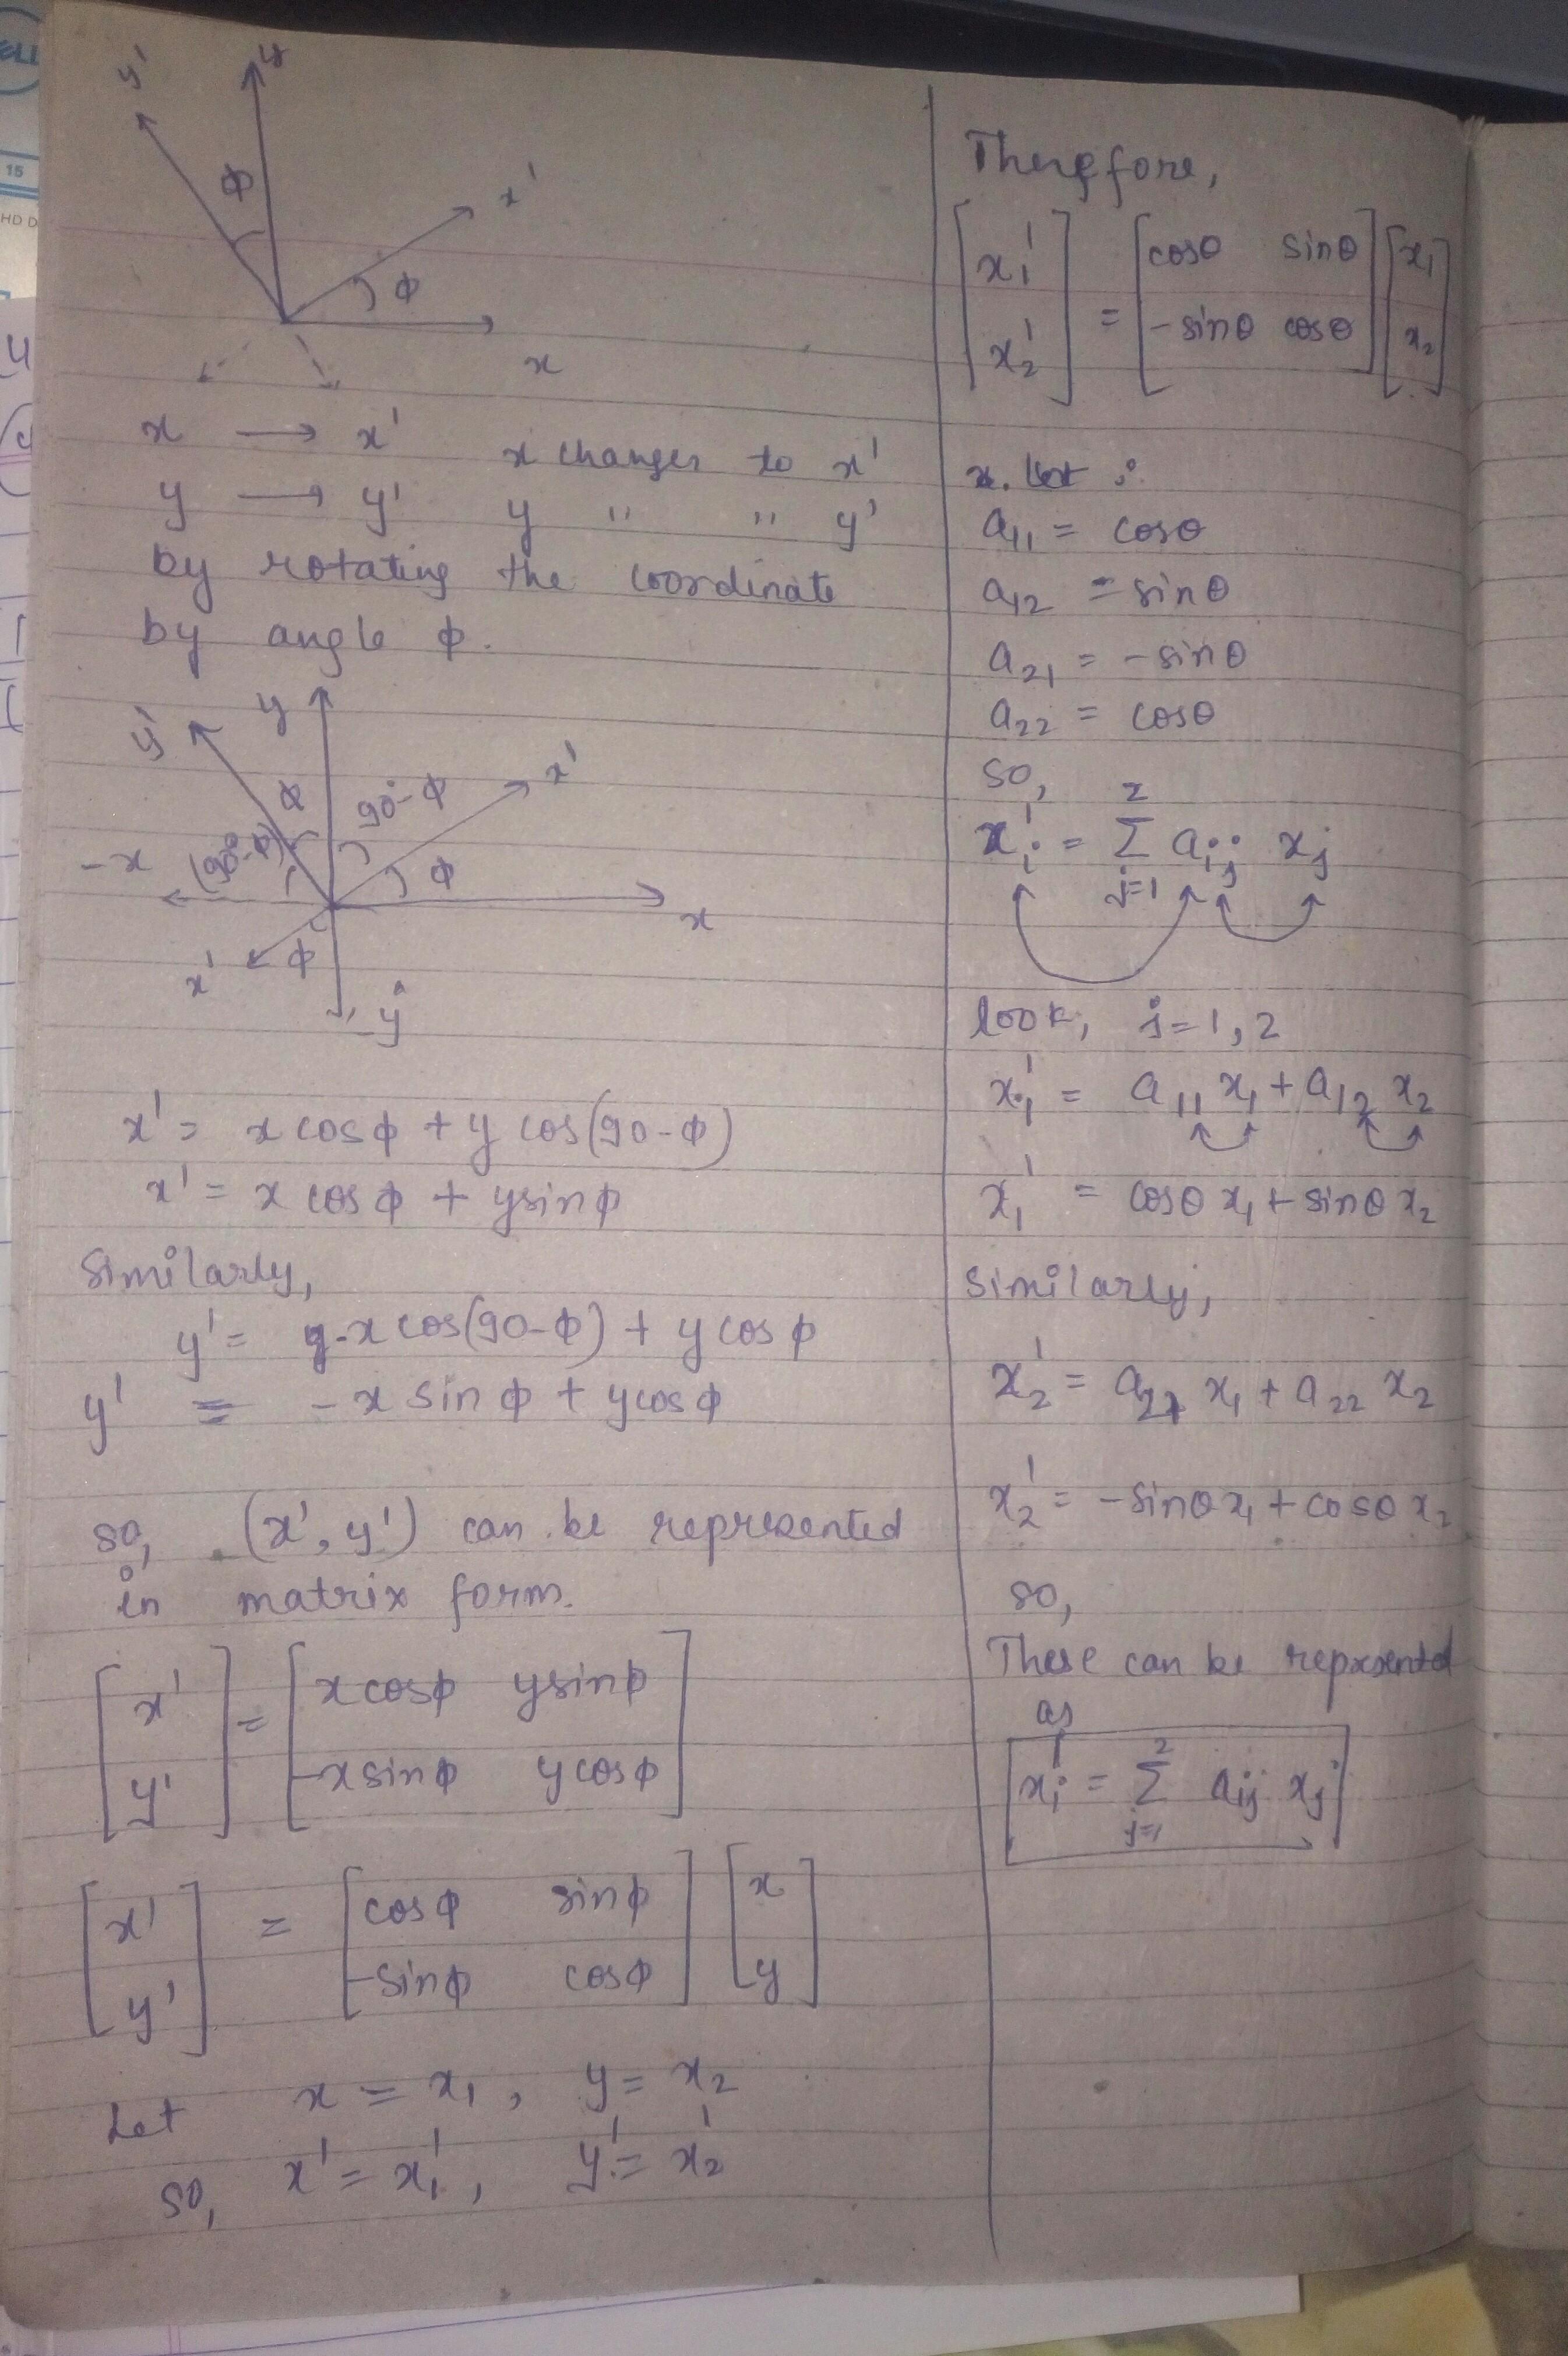 ELL
15
HD D
y' y
ϕ x'
ϕ
x
x → x' x changes to x'
y → y' y " " y'
by rotating the coordinate
by angle ϕ.
y' y x'
ϕ 90°-ϕ
-x (90°-ϕ) ϕ
x
x' ϕ
-y
x' = x cosϕ + y cos(90-ϕ)
x' = x cosϕ + ysinϕ
Similarly,
y' = -x cos(90-ϕ) + y cosϕ
y' = -x sinϕ + ycosϕ
so, (x', y') can be represented
in matrix form.
[x' y'] = [xcosϕ ysinϕ
-xsinϕ ycosϕ]
[x' y'] = [cosϕ sinϕ
-sinϕ cosϕ] [x y]
Let x = x₁, y = x₂
so, x' = x₁', y' = x₂'
Therefore,
[x₁' x₂'] = [cosθ sinθ
-sinθ cosθ] [x₁ x₂]
a₁₁ = cosθ
a₁₂ = sinθ
a₂₁ = -sinθ
a₂₂ = cosθ
so,
xᵢ' = 2 Σ j=1 aᵢⱼ xⱼ
look, j=1,2
x₁' = a₁₁ x₁ + a₁₂ x₂
x₁' = cosθ x₁ + sinθ x₂
Similarly,
x₂' = a₂₁ x₁ + a₂₂ x₂
x₂' = -sinθ x₁ + cosθ x₂
so,
These can be represented
as
xᵢ' = 2 Σ j=1 aᵢⱼ xⱼ